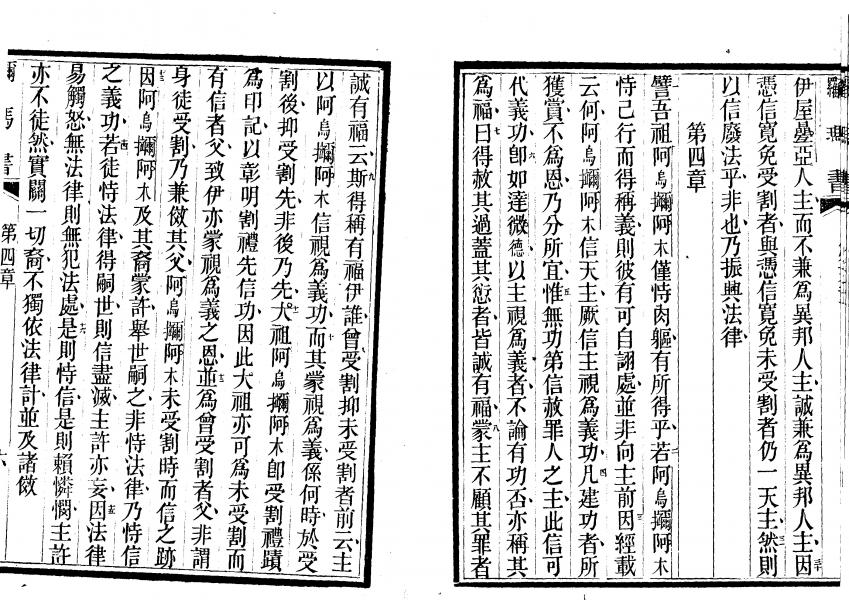 羅馬書
伊屋曡亞人主而不兼為異邦人主誠兼為異邦人主因
憑信寬免受割者與憑信寬免未受割者仍一天主然則
以信廢法乎非也乃振興法律
第四章
譬吾祖阿烏擟阿木僅恃肉軀有所得乎若阿烏擟阿木
恃己行而得稱義則彼有可自詡處並非向主前因經載
云何阿烏擟阿木信天主厥信主視為義功凡建功者所
獲賞不為恩乃分所宜惟無功第信赦罪人之主此信可
代義功卽如達微德以主視為義者不論有功否亦稱其
為福曰得赦其過蓋其愆者皆誠有福蒙主不顧其罪者
誠有福云斯得稱有福伊誰曾受割抑未受割者前云主
以阿烏擟阿木信視為義功而其蒙視為義係何時於受
割後抑受割先非後乃先大祖阿烏擟阿木卽受割禮蹟
為印記以彰明割禮先信功因此大祖亦可為未受割而
有信者父致伊亦蒙視為義之恩並為曾受割者父非謂
身徒受割乃兼倣其父阿烏擟阿木未受割時而信之跡
因阿烏擟阿木及其裔蒙許舉世嗣之非恃法律乃恃信
之義功若徒恃法律得嗣世則信盡滅主許亦妄因法律
易觸怒無法律則無犯法處是則恃信是則賴憐憫主許
亦不徒然實關一切裔不獨依法律計並及諸倣
馬書
第四章
六